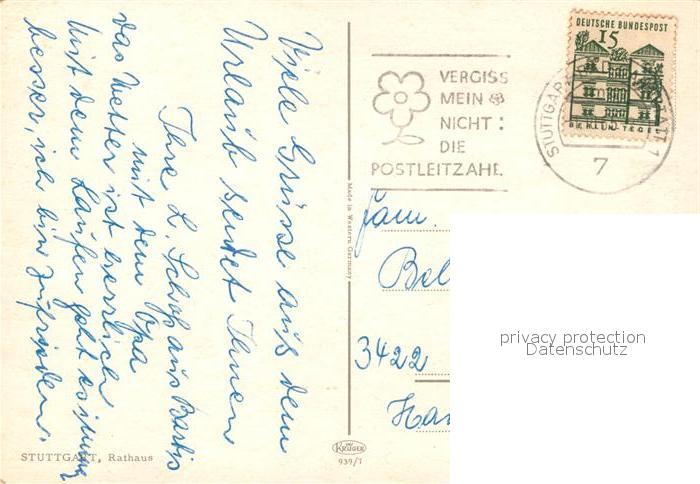 Viele Grüsse aus dem
Urlaub sendet Ihnen
Ihre L. Schopp aus
mit dem Opa
das Wetter ist herrlich
Mit dem Laufen geht es immer
besser, ich bin zufrieden.
STUTTGART, Rathaus
Made in Western Germany
KRÜGER
939/7
VERGISS
MEIN
NICHT:
DIE
POSTLEITZAHL
DEUTSCHE BUNDESPOST
15
BERLIN-TEGEL
STUTTGART
1
7
Fam.
Bel
3422
Ha
privacy protection
Datenschutz